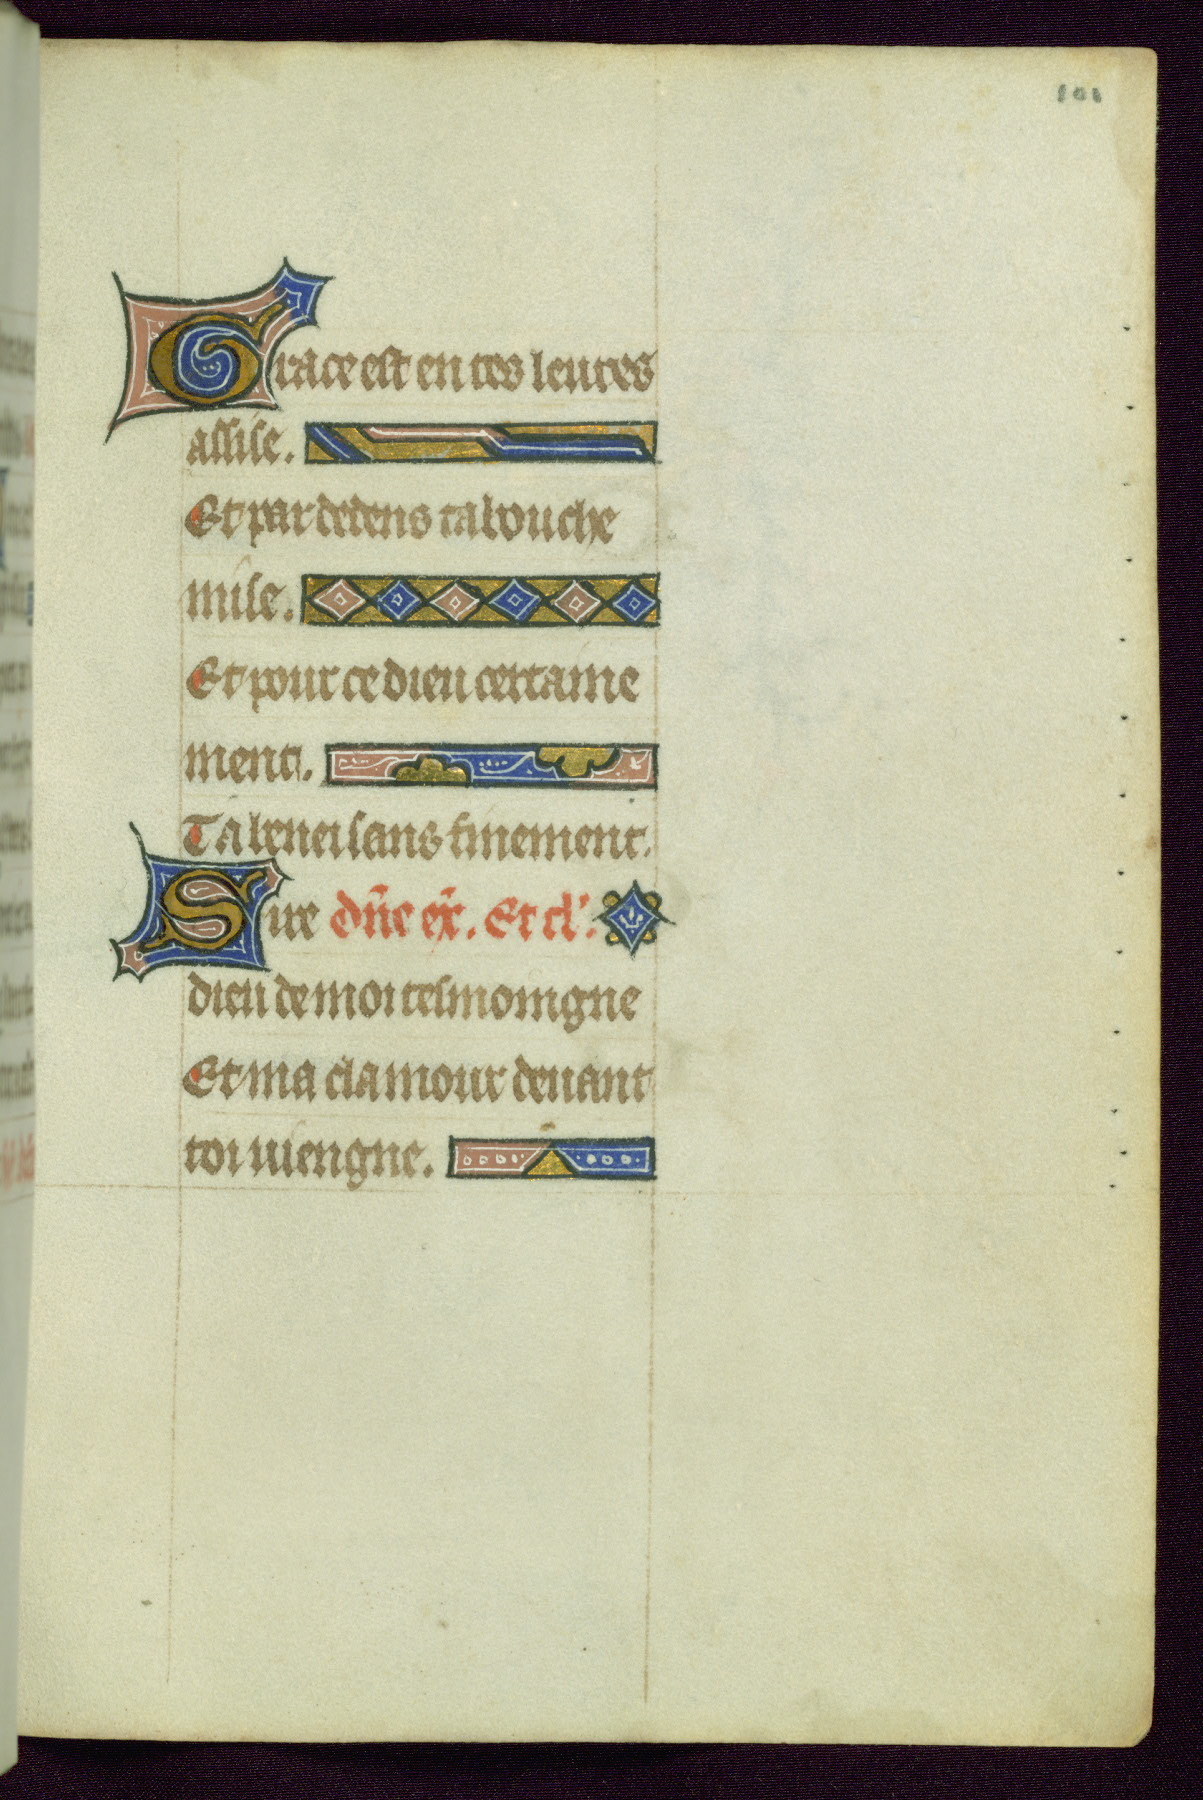 101
Grace est en tes leures
assise.
Et par dedens ta bouche
mise.
Et pour ce dieu certaine
ment.
Ta benei sans finement.
Sire dñe ex̄. Et cl'.
dieu de moi tesmoingne
Et ma clamour deuant
toi uiengne.